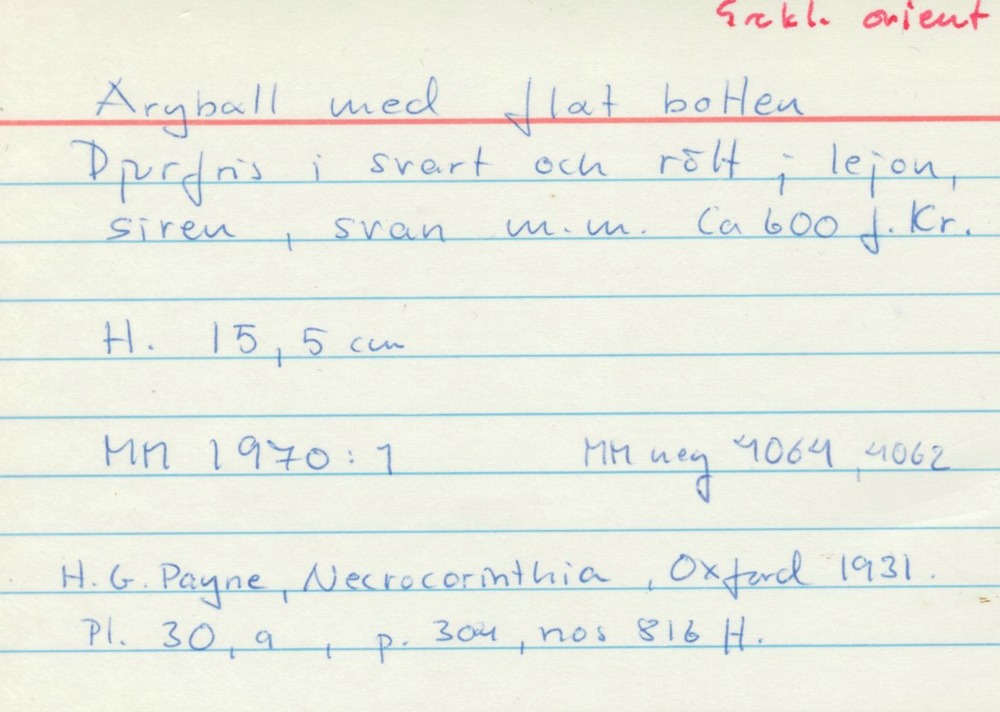 Grekl. orient
Aryball med flat botten
Djurfris i svart och rött ; lejon,
siren , svan m.m. Ca 600 f.Kr.
H. 15,5 cm
MM 1970:1 MM neg 4064 ,4062
H.G. Payne, Necrocorinthia , Oxford 1931.
Pl. 30, 9 , p. 304, nos 816 ff.